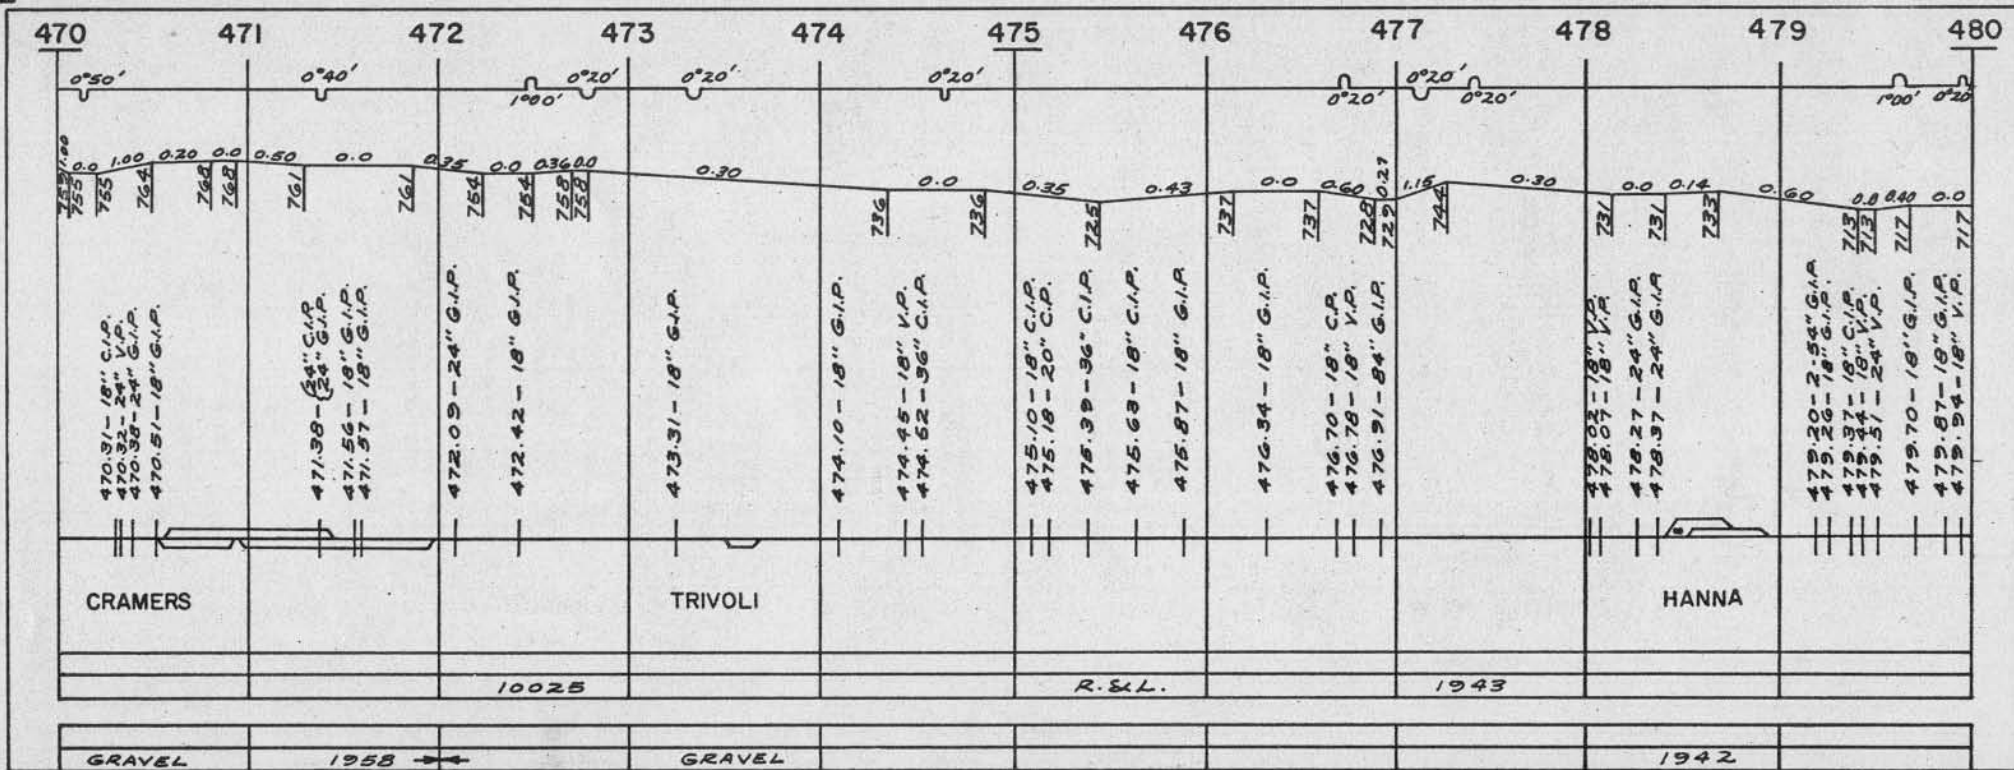 470 471 472 473 474 475 476 477 478 479 480
0°50' 0°40' 1°00' 0°20' 0°20' 0°20' 0°20' 0°20' 0°20' 1°00' 0°20'
1.00 0.0 1.00 0.20 0.0 0.50 0.0 0.35 0.0 0.36 0.0 0.30 0.0 0.35 0.43 0.0 0.60 0.27 1.15 0.30 0.0 0.14 0.60 0.0 0.40 0.0
755 755 764 768 768 761 761 754 754 758 758 736 736 725 737 737 728 729 744 731 731 733 713 713 717 717
470.31-18" C.I.P.
470.32-24" V.P.
470.38-24" G.I.P.
470.51-18" G.I.P.
471.38-{24" C.I.P.
{24" G.I.P.
471.56-18" G.I.P.
471.57-18" G.I.P.
472.09-24" G.I.P.
472.42-18" G.I.P.
473.31-18" G.I.P.
474.10-18" G.I.P.
474.45-18" V.P.
474.52-36" C.I.P.
475.10-18" C.I.P.
475.18-20" C.P.
475.39-36" C.I.P.
475.63-18" C.I.P.
475.87-18" G.I.P.
476.34-18" G.I.P.
476.70-18" C.P.
476.78-18" V.P.
476.91-84" G.I.P.
478.02-18" V.P.
478.07-18" V.P.
478.27-24" G.I.P.
478.37-24" G.I.P.
479.20-2-54" G.I.P.
479.26-18" G.I.P.
479.37-18" C.I.P.
479.44-18" V.P.
479.51-24" V.P.
479.70-18" G.I.P.
479.87-18" G.I.P.
479.94-18" V.P.
CRAMERS TRIVOLI HANNA
10025 R.&L. 1943
GRAVEL 1958 GRAVEL 1942